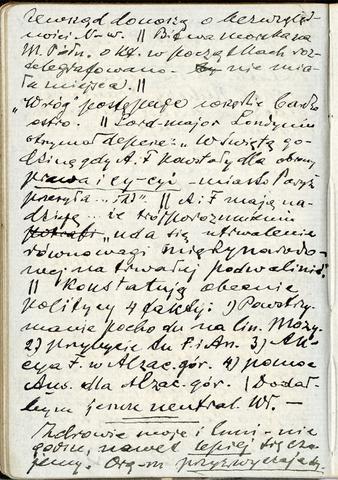 zewsząd donoszą o bezwzględ-
ności N-w. || Bitwa morska na
M. Półn. o kt. w początkach roz-
telegrafowano - nie mia-
ła miejsca. ||
"Wróg" postępuje wszędzie bardzo
ostro. || Lord-major Londynu
otrzymał depeszę: "W świętą go-
dzinę gdy A. F. powstały dla obrony
prawa i cy-cyi - miasto Paryż
przesyła ... || A i F mają na-
dzieję ... że trójporozumieniu
"uda się utrwalenie
równowagi międzynarodo-
wej na trwałej podwalinie".
|| Konstatują obecnie
politycy 4 fakty: 1) Powstrzy-
manie pochodu na lin. Mozy.
2) przybycie An. 3) Ak-
cya F. w Alzac. gór. 4) pomoc
Aus. dla Alzac. gór. | Dodał-
bym jeszcze neutral. Wł. -
Zdrowie moje i Luni - nie-
godne, nawet lepiej się czu-
jemy. Org-m przyzwyczajają.